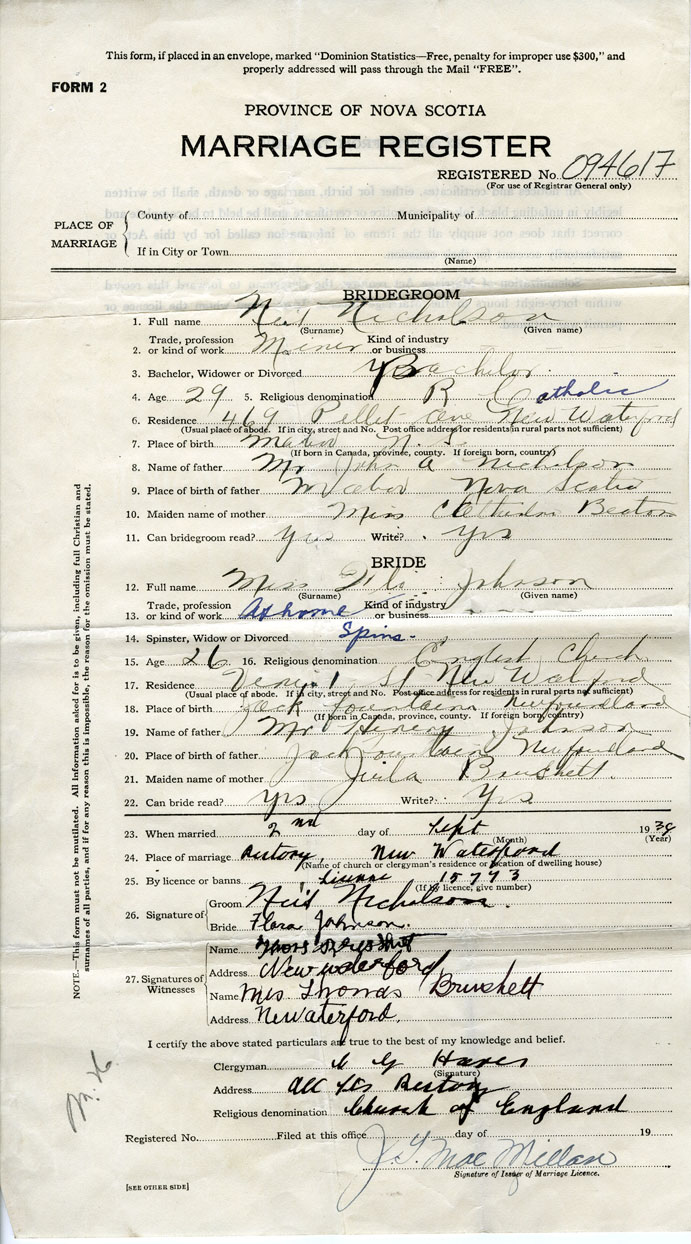 This form, if placed in an envelope, marked "Dominion Statistics—Free, penalty for improper use $300," and
properly addressed will pass through the Mail "FREE".
FORM 2
PROVINCE OF NOVA SCOTIA
MARRIAGE REGISTER
REGISTERED No. 094617
(For use of Registrar General only)
PLACE OF MARRIAGE
County of
Municipality of
If in City or Town
(Name)
BRIDEGROOM
1. Full name Neil Nicholson
(Surname) (Given name)
2. Trade, profession or kind of work Miner Kind of industry or business
3. Bachelor, Widower or Divorced Bachelor
4. Age 29 5. Religious denomination R Catholic
6. Residence 469 Pellet Ave New Waterford
(Usual place of abode. If in city, street and No. Post office address for residents in rural parts not sufficient)
7. Place of birth Mabou N. S.
(If born in Canada, province, county. If foreign born, country)
8. Name of father Mr John A Nicholson
9. Place of birth of father Mabou Nova Scotia
10. Maiden name of mother Miss Beaton
11. Can bridegroom read? Yes Write? Yes
BRIDE
12. Full name Miss Johnson
(Surname) (Given name)
13. Trade, profession or kind of work At home Kind of industry or business
14. Spinster, Widow or Divorced Spins-
15. Age 26 16. Religious denomination English Church
17. Residence St New Waterford
(Usual place of abode. If in city, street and No. Post office address for residents in rural parts not sufficient)
18. Place of birth Jack Fountain Newfoundland
(If born in Canada, province, county. If foreign born, country)
19. Name of father Mr Henery Johnson
20. Place of birth of father Jack Fountain Newfoundland
21. Maiden name of mother Julia Brushett.
22. Can bride read? Yes Write? Yes
23. When married 2nd day of Sept 19
(Month) (Year)
24. Place of marriage Rectory, New Waterford
(Name of church or clergyman's residence or location of dwelling house)
25. By licence or banns License 15793
(If by licence, give number)
26. Signature of
Groom Neil Nicholson.
Bride Flora Johnson.
27. Signatures of Witnesses
Name
Address New waterford
Name Mrs Thomas Brushett
Address Newaterford.
I certify the above stated particulars are true to the best of my knowledge and belief.
Clergyman
(Signature)
Address Rectory
Religious denomination Church of England
Registered No. Filed at this office day of 19
J. MacMillan
Signature of Issuer of Marriage Licence.
[SEE OTHER SIDE]
NOTE.—This form must not be mutilated. All information asked for is to be given, including full Christian and
surnames of all parties, and if for any reason this is impossible, the reason for the omission must be stated.